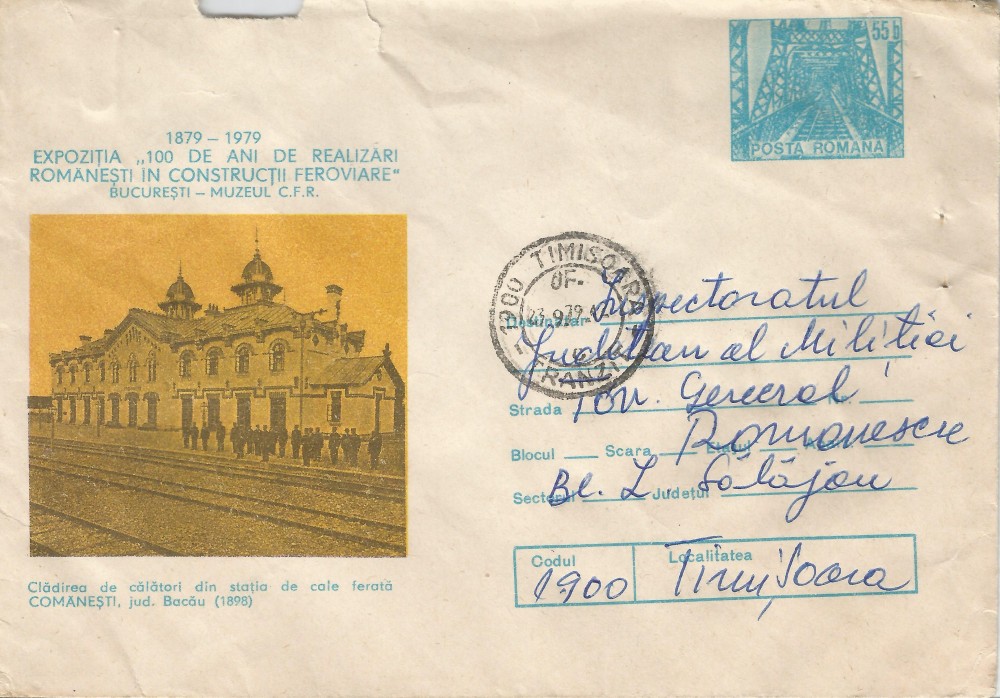 55 b
POSTA ROMANA
1879 – 1979
EXPOZIȚIA „100 DE ANI DE REALIZĂRI
ROMÂNEȘTI ÎN CONSTRUCȚII FEROVIARE“
BUCUREȘTI – MUZEUL C.F.R.
Clădirea de călători din stația de cale ferată
COMĂNEȘTI, jud. Bacău (1898)
1900 TIMISOARA
OF.
23.9.79
FRANZIT
Destinatar Inspectoratul
Județean al Militiei
Strada Tov. General
Blocul Scara Etajul Romanescu
Sectorul Bl. Z, Județul Sălăjan
Codul Localitatea
1900 Timișoara